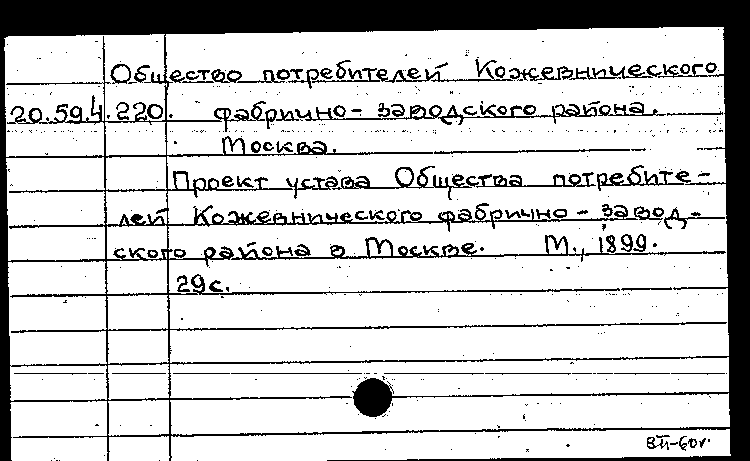 Общество потребителей Кожевнического
20.59.4.220. фабрично-заводского района.
Москва.
Проект устава Общества потребите-
лей Кожевнического фабрично-завод-
ского района в Москве. М., 1899.
29с.